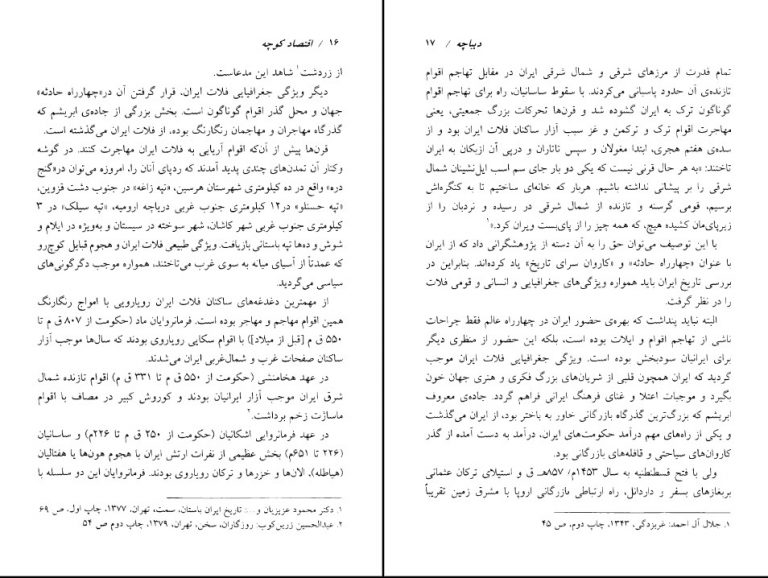 ۱۶ / اقتصاد کوچه
از زردشت۱ شاهد این مدعاست.
دیگر ویژگی جغرافیایی فلات ایران، قرار گرفتن آن در«چهارراه حادثه»
جهان و محل گذر اقوام گوناگون است. بخش بزرگی از جاده‌ی ابریشم که
گذرگاه مهاجران و مهاجمان رنگارنگ بوده، از فلات ایران می‌گذشته است.
قرن‌ها پیش از آن‌که اقوام آریایی به فلات ایران مهاجرت کنند. در گوشه
وکنار آن تمدن‌های چندی پدید آمدند که ردپای آنان را، امروزه می‌توان در«گنج
دره» واقع در ده کیلومتری شهرستان هرسین، «تپه زاغه» در جنوب دشت قزوین،
«تپه حسنلو» در۱۲ کیلومتری جنوب غربی دریاچه ارومیه، «تپه سیلک» در ۳
کیلومتری جنوب غربی شهر کاشان، شهر سوخته در سیستان و به‌ویژه در ایلام و
شوش و ده‌ها تپه باستانی بازیافت. ویژگی طبیعی فلات ایران و هجوم قبایل کوچ‌رو
که عمدتاً از آسیای میانه به سوی غرب می‌تاختند، همواره موجب دگرگونی‌های
سیاسی می‌گردید.
از مهمترین دغدغه‌های ساکنان فلات ایران رویارویی با امواج رنگارنگ
همین اقوام مهاجم و مهاجر بوده است. فرمانروایان ماد (حکومت از ۸۰۷ ق م تا
۵۵۰ ق م [قبل از میلاد]) با اقوام سکایی رویاروی بودند که سال‌ها موجب آزار
ساکنان صفحات غرب و شمال‌غربی ایران می‌شدند.
در عهد هخامنشی (حکومت از ۵۵۰ ق م تا ۳۳۱ ق م) اقوام تازنده شمال
شرق ایران موجب آزار ایرانیان بودند و کوروش کبیر در مصاف با اقوام
ماساژت زخم برداشت.۲
در عهد فرمانروایی اشکانیان (حکومت از ۲۵۰ ق م تا ۲۲۶م) و ساسانیان
(۲۲۶ تا ۶۵۱م) بخش عظیمی از نفرات ارتش ایران با هجوم هون‌ها یا هفتالیان
(هیاطله)، آلان‌ها و خزرها و ترکان رویاروی بودند. فرمانروایان این دو سلسله با
۱. دکتر محمود عزیزیان و ... تاریخ ایران باستان، سمت، تهران، ۱۳۷۷، چاپ اول، ص ۶۹
۲. عبدالحسین زرین‌کوب: روزگاران، سخن، تهران، ۱۳۷۹، چاپ دوم ص ۵۴
دیباچه / ۱۷
تمام قدرت از مرزهای شرقی و شمال شرقی ایران در مقابل تهاجم اقوام
تازنده‌ی آن حدود پاسبانی می‌کردند. با سقوط ساسانیان، راه برای تهاجم اقوام
گوناگون ترک به ایران گشوده شد و قرن‌ها تحرکات بزرگ جمعیتی، یعنی
مهاجرت اقوام ترک و ترکمن و غز سبب آزار ساکنان فلات ایران بود و از
سده‌ی هفتم هجری، ابتدا مغولان و سپس تاتاران و درپی آن ازبکان به ایران
تاختند: «به هر حال قرنی نیست که یکی دو بار جای سم اسب ایل‌نشینان شمال
شرقی را بر پیشانی نداشته باشیم. هربار که خانه‌ای ساختیم تا به کنگره‌اش
برسیم، قومی گرسنه و تازنده از شمال شرقی در رسیده و نردبان را از
زیرپای‌مان کشیده هیچ، که همه چیز را از پای‌بست ویران کرد.»۱
با این توصیف می‌توان حق را به آن دسته از پژوهشگرانی داد که از ایران
با عنوان «چهارراه حادثه» و «کاروان سرای تاریخ» یاد کرده‌اند. بنابراین در
بررسی تاریخ ایران باید همواره ویژگی‌های جغرافیایی و انسانی و قومی فلات
را در نظر گرفت.
البته نباید پنداشت که بهره‌ی حضور ایران در چهارراه عالم فقط جراحات
ناشی از تهاجم اقوام و ایلات بوده است، بلکه این حضور از منظری دیگر
برای ایرانیان سودبخش بوده است. ویژگی جغرافیایی فلات ایران موجب
گردید که ایران همچون قلبی از شریان‌های بزرگ فکری و هنری جهان خون
بگیرد و موجبات اعتلا و غنای فرهنگ ایرانی فراهم گردد. جاده‌ی معروف
ابریشم که بزرگ‌ترین گذرگاه بازرگانی خاور به باختر بود، از ایران می‌گذشت
و یکی از راه‌های مهم درآمد حکومت‌های ایران، درآمد به دست آمده از گذر
کاروان‌های سیاحتی و قافله‌های بازرگانی بود.
ولی با فتح قسطنطنیه به سال ۱۴۵۳م/ ۸۵۷هـ ق و استیلای ترکان عثمانی
بربغازهای بسفر و داردانل، راه ارتباطی بازرگانی اروپا با مشرق زمین تقریباً
۱. جلال آل احمد: غربزدگی، ۱۳۴۳، چاپ دوم، ص ۴۵